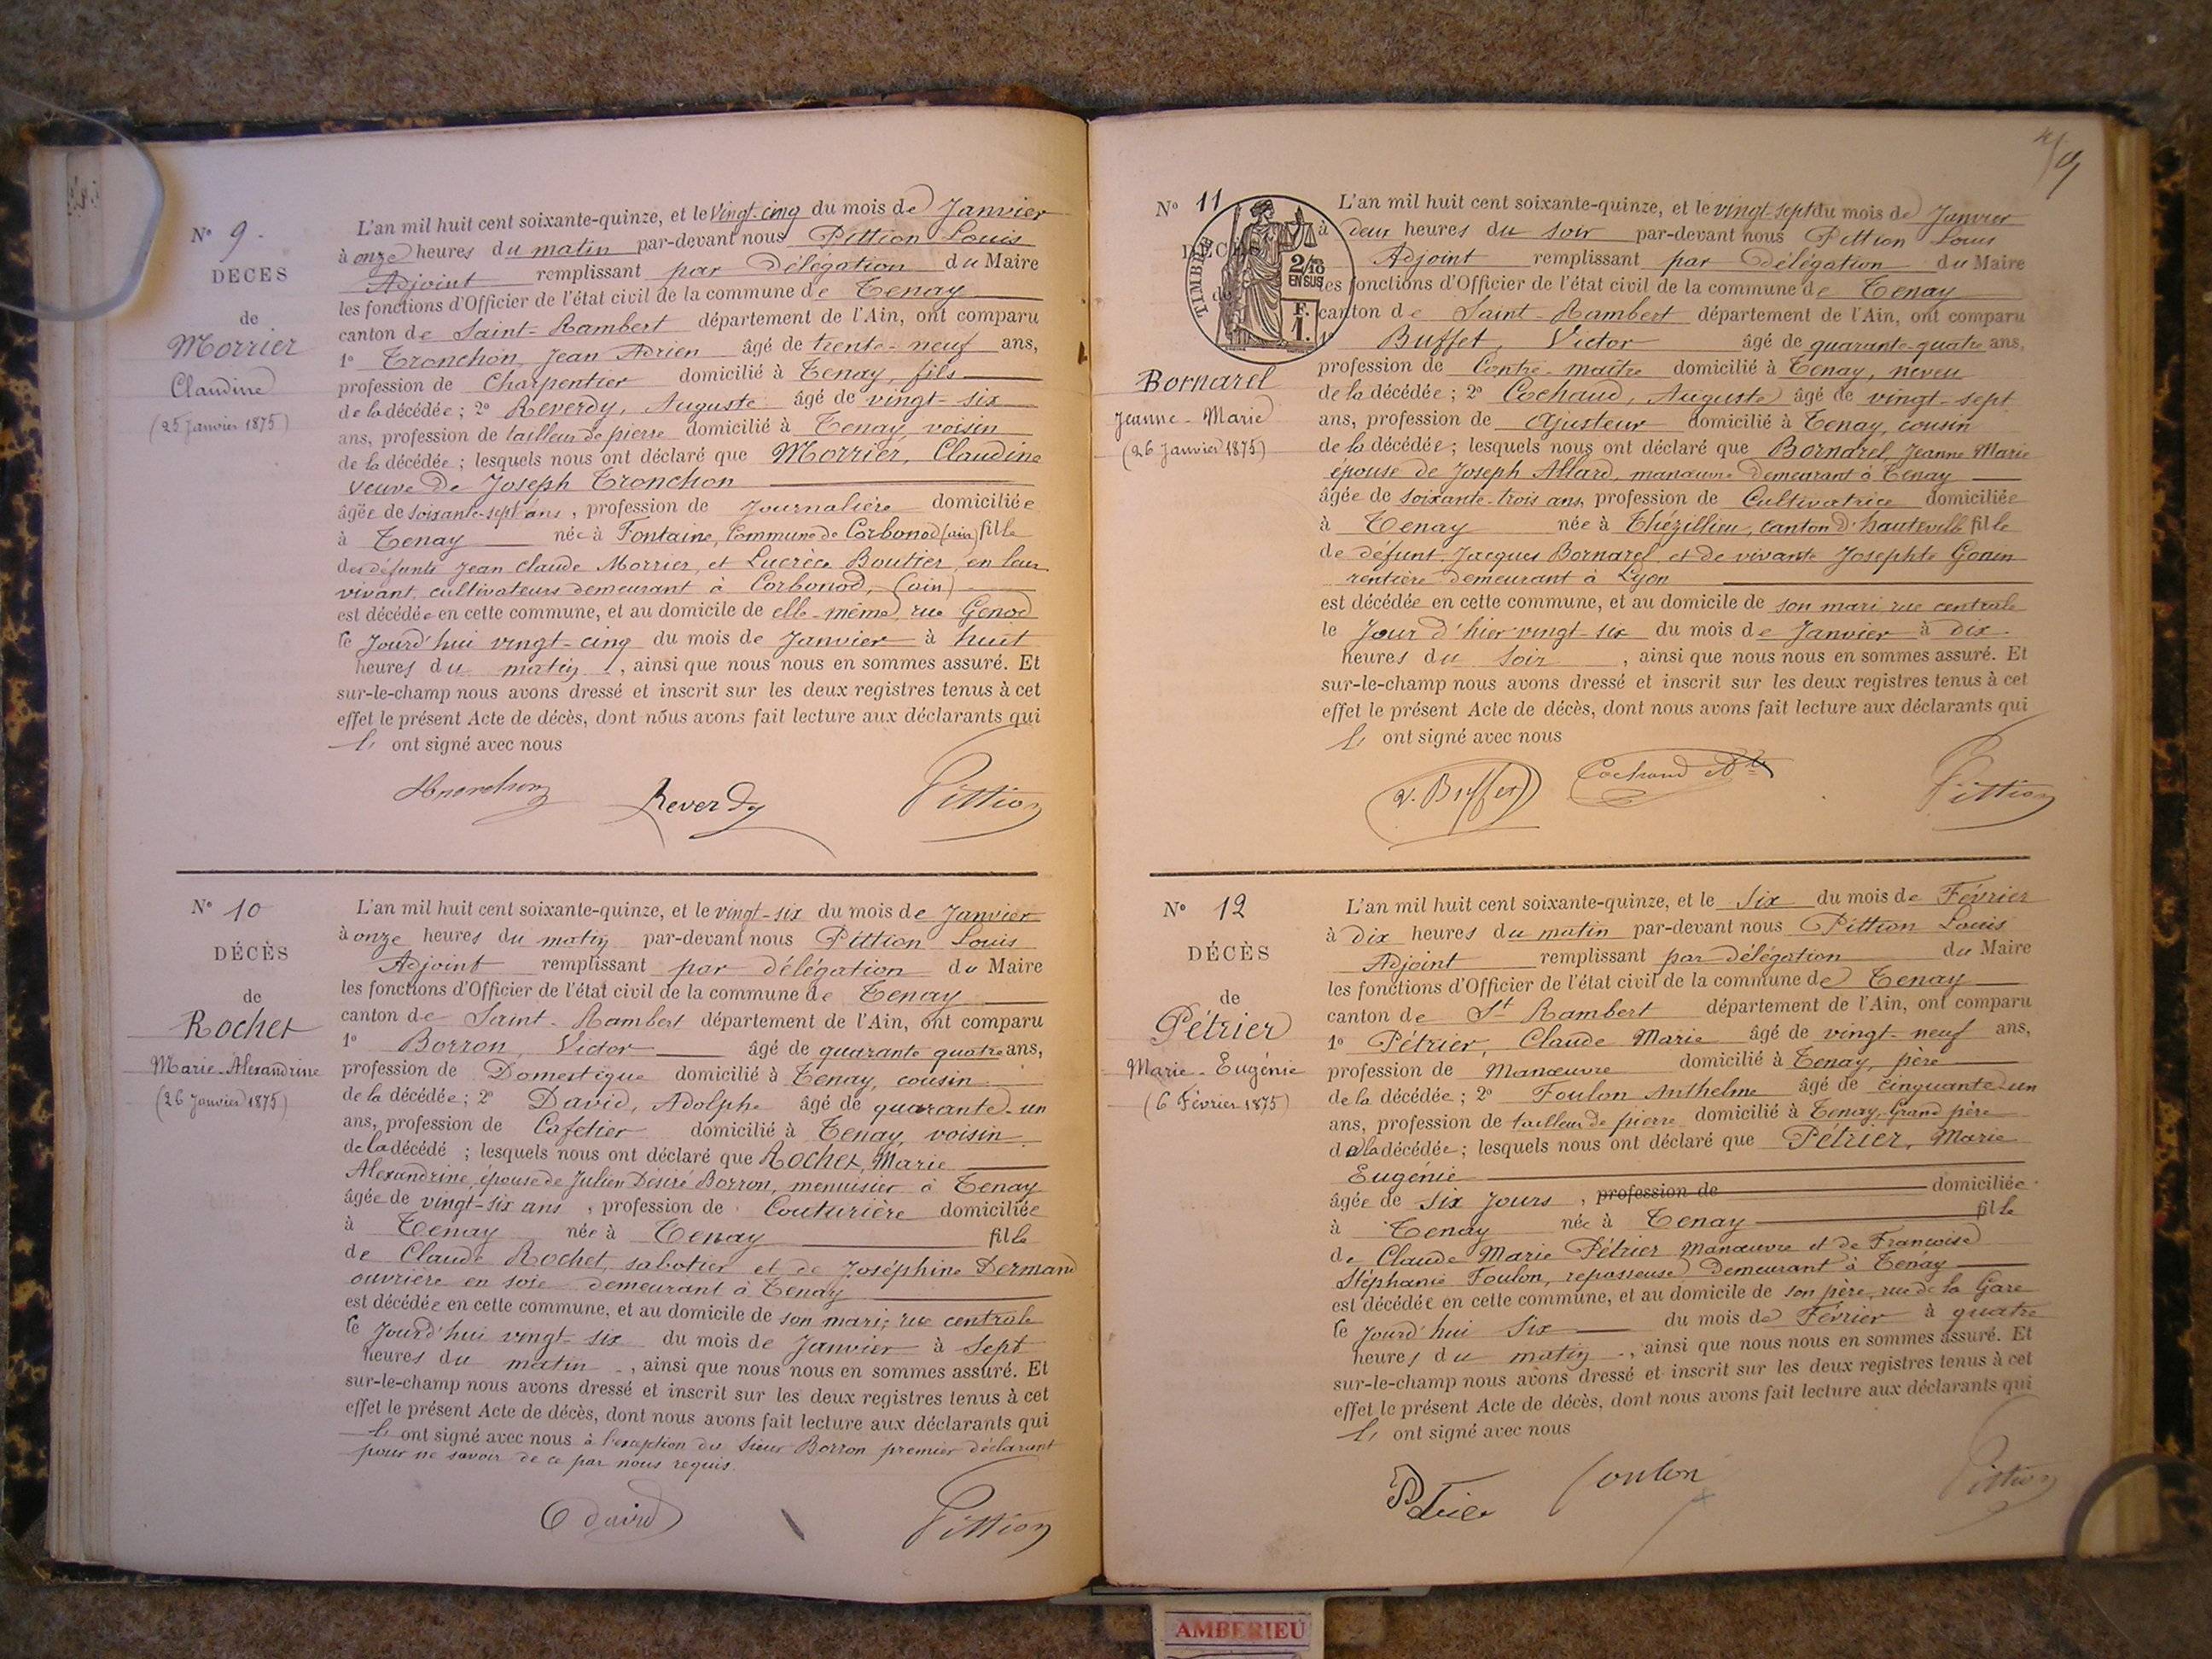 N° 9.
DÉCÈS
de
Morrier
Claudine
(25 Janvier 1875)
L'an mil huit cent soixante-quinze, et le Vingt-cinq du mois de Janvier
à onze heures du matin par-devant nous Pittion Louis
Adjoint remplissant par délégation du Maire
les fonctions d'Officier de l'état civil de la commune de Tenay
canton de Saint-Rambert département de l'Ain, ont comparu
1° Tronchon, Jean Adrien âgé de trente-neuf ans,
profession de Charpentier domicilié à Tenay, fils
de la décédée; 2° Reverdy, Auguste âgé de vingt-six
ans, profession de tailleur de pierre domicilié à Tenay, voisin
de la décédée; lesquels nous ont déclaré que Morrier, Claudine
veuve de Joseph Tronchon
âgée de soixante-sept ans, profession de Journalière domiciliée
à Tenay née à Fontaine, Commune de Corbonod (ain) fille
des défunts Jean Claude Morrier, et Lucrèce Boutier, en leur
vivant, cultivateurs demeurant à Corbonod, (ain)
est décédée en cette commune, et au domicile de elle-même, rue Genod
le Jourd'hui vingt-cinq du mois de Janvier à huit
heures du matin, ainsi que nous nous en sommes assuré. Et
sur-le-champ nous avons dressé et inscrit sur les deux registres tenus à cet
effet le présent Acte de décès, dont nous avons fait lecture aux déclarants qui
ont signé avec nous
Reverdy Pittion
N° 10
DÉCÈS
de
Rochet
Marie-Alexandrine
(26 Janvier 1875)
L'an mil huit cent soixante-quinze, et le vingt-six du mois de Janvier
à onze heures du matin par-devant nous Pittion Louis
Adjoint remplissant par délégation du Maire
les fonctions d'Officier de l'état civil de la commune de Tenay
canton de Saint-Rambert département de l'Ain, ont comparu
1° Borron, Victor âgé de quarante quatre ans,
profession de Domestique domicilié à Tenay, cousin
de la décédée; 2° David, Adolphe âgé de quarante-un
ans, profession de Cafetier domicilié à Tenay, voisin
de la décédé; lesquels nous ont déclaré que Rochet, Marie
Alexandrine, épouse de Julien Désiré Borron, menuisier à Tenay
âgée de vingt-six ans, profession de Couturière domiciliée
à Tenay née à Tenay fille
de Claude Rochet, sabotier et de Joséphine Dermand
ouvrière en soie demeurant à Tenay
est décédée en cette commune, et au domicile de son mari, rue centrale
le Jourd'hui vingt-six du mois de Janvier à Sept
heures du matin, ainsi que nous nous en sommes assuré. Et
sur-le-champ nous avons dressé et inscrit sur les deux registres tenus à cet
effet le présent Acte de décès, dont nous avons fait lecture aux déclarants qui
ont signé avec nous à l'exception du Sieur Borron premier déclarant
pour ne savoir de ce par nous requis.
David Pittion
9
N° 11
DÉCÈS
de
TIMBRE
2/10
EN SUS
F.
1.
Bornarel
Jeanne-Marie
(26 Janvier 1875)
L'an mil huit cent soixante-quinze, et le vingt-sept du mois de Janvier
à deux heures du soir par-devant nous Pittion Louis
Adjoint remplissant par délégation du Maire
les fonctions d'Officier de l'état civil de la commune de Tenay
canton de Saint-Rambert département de l'Ain, ont comparu
1° Buffet, Victor âgé de quarante-quatre ans,
profession de Contre-maître domicilié à Tenay, neveu
de la décédée; 2° Cochaud, Auguste âgé de vingt-sept
ans, profession de Ajusteur domicilié à Tenay, cousin
de la décédée; lesquels nous ont déclaré que Bornarel, Jeanne Marie
épouse de Joseph Allard, manœuvre demeurant à Tenay
âgée de soixante-trois ans, profession de Cultivatrice domiciliée
à Tenay née à Thézillieu, canton d'hauteville fille
de défunt Jacques Bornarel, et de vivante Josephte Gonin
rentière demeurant à Lyon
est décédée en cette commune, et au domicile de son mari, rue centrale
le Jour d'hier vingt-six du mois de Janvier à dix
heures du soir, ainsi que nous nous en sommes assuré. Et
sur-le-champ nous avons dressé et inscrit sur les deux registres tenus à cet
effet le présent Acte de décès, dont nous avons fait lecture aux déclarants qui
ont signé avec nous
V. Buffet Cochaud Pittion
N° 12
DÉCÈS
de
Pétrier
Marie-Eugénie
(6 Février 1875)
L'an mil huit cent soixante-quinze, et le Six du mois de Février
à dix heures du matin par-devant nous Pittion Louis
Adjoint remplissant par délégation du Maire
les fonctions d'Officier de l'état civil de la commune de Tenay
canton de St Rambert département de l'Ain, ont comparu
1° Pétrier, Claude Marie âgé de vingt-neuf ans,
profession de Manœuvre domicilié à Tenay, père
de la décédée; 2° Foulon Anthelme âgé de cinquante-un
ans, profession de tailleur de pierre domicilié à Tenay, Grand père
de la décédée; lesquels nous ont déclaré que Pétrier, Marie
Eugénie
âgée de six jours, profession de domiciliée
à Tenay née à Tenay fille
de Claude Marie Pétrier Manœuvre et de Françoise
Stéphanie Foulon, repasseuse, demeurant à Tenay
est décédée en cette commune, et au domicile de son père, rue de la Gare
le jourd'hui Six du mois de Février à quatre
heures du matin, ainsi que nous nous en sommes assuré. Et
sur-le-champ nous avons dressé et inscrit sur les deux registres tenus à cet
effet le présent Acte de décès, dont nous avons fait lecture aux déclarants qui
ont signé avec nous
Foulon Pittion
AMBERIEU